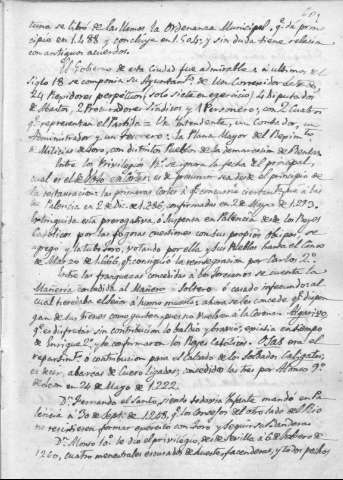 tuna se libró de las llamas la Ordenanza Municipal, q.e dá prin-
cipio en 1.488 y concluye en 1.565; y sin duda tiene relacion
con antiguos acuerdos.
El Gobierno de esta Ciudad fue admirable a ultimos del
Siglo 18 se componia su Ayuntam.to de Un Corregidor
24 Regidores perpetuos, solo siete en exercicio) 4 Diputados
de Abastos, 2 Procuradores Sindicos y 1 Personero, con 2 Cuatro
q.e representan el Partido = Un Yntendente, un Contador, un
Administrador y un Tesorero: la Plana Mayor del Regim.to
de Milicias de Toro, con distritos Pueblos de la demarcacion de Rentas
Entre los Privilegios R.s se ignora la fecha del principal,
cual es el de Voto en Cortes: es de presumir sea desde el principio de
la restauracion: las primeras Cortes á q.e concurrio ciertam.te fue a las
de Palencia en 2 de Dic. de 1.286, confirmadas en 2 de Mayo de 1.293.
Extinguida esta prerogativa, ó suspensa en Palencia desde los Reyes
Catolicos por las fogosas cuestiones con sus propios Obispos, se
agregó y la tubo Toro, votando por ella y sus Pueblos hasta el Cinco
de Marzo de 1.666, q.e consiguió la reintegracion por Carlos 2.º
Entre las franquezas concedidas a los Toresanos se cuenta la
Mañeria, contabida al Mañero ó Soltero ó casado infecundo, al
cual heredaba el Señor á humo muerto; ahora se les concede q.e dispon-
gan de sus bienes como gusten, y no se vuelvan á la Corona: Algarivo
q.e es disfrutar sin contribucion lo baldio y bravio; existia en tiempo
de Enrique 2.º y lo confirmaron los Reyes Catolicos. Otas era el
repartim.to ó contribucion para el Calzado de los Soldados Caligatos,
es decir, abarcas de Cuero lizadas; concedidas las tres por Alonso 9.º
de Leon en 24 de Mayo de 1.222.
D.n Fernando el Santo, siendo todavia Ynfante mandó en Pa-
lencia á 30 de Sept. de 1.248, q.e los Concejos del otro lado del Rio
no resistiesen formar exercito con Toro y Seguir su Bandera
D.n Alonso 10.º le dio el privilegio, desde Sevilla a 6 de Febrero de
1260, cuatro menestrales escusados de hueste, facenderas, y todos pechos